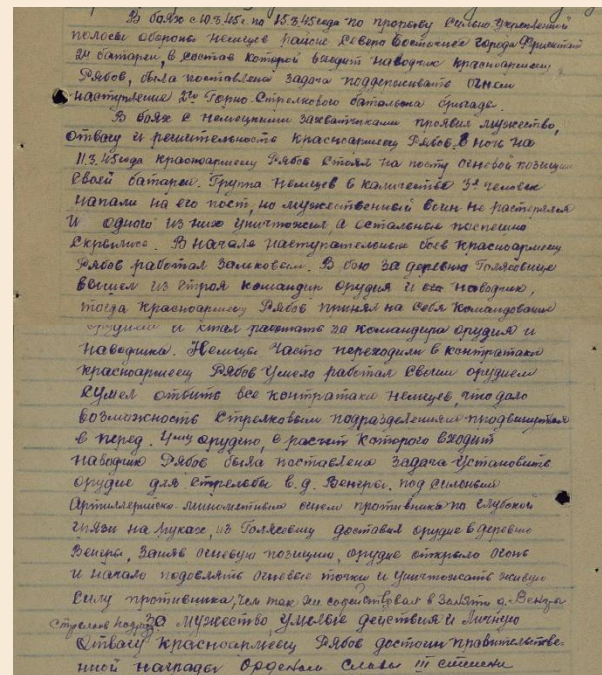 В боях с 10.3.45г. по 15.3.45 года по прорыву сильно укрепленной
полосы обороны немцев районе Северо Восточнее города
2ой батареи, в состав которой входит наводчик красноармеец
Рябов, была поставлена задача поддерживать огнем
наступление 2го Горно-Стрелкового батальона бригады.
В боях с немецкими захватчиками проявил мужество,
отвагу и решительность красноармеец Рябов. В ночь на
11.3.45года красноармеец Рябов стоял на посту огневой позиции
своей батареи. Группа немцев в количестве 3х человек
напали на его пост, но мужественный воин не растерялся
и одного из них уничтожил, а остальные поспешно
скрылись. В начале наступательных боев красноармеец
Рябов работал замковым. В бою за деревню Голясовице
вышел из строя командир орудия и наводчик,
тогда красноармеец Рябов принял на себя командование
орудием и стал работать за командира орудия и
наводчика. Немцы часто переходили в контратаки
красноармеец Рябов умело работал своим орудием
сумел отбить все контратаки немцев, что дало
возможность стрелковым подразделениям продвинуться
в перед. орудию, в расчет которого входит
наводчик Рябов была поставлена задача установить
орудие для стрельбы в.д. Венгры. под сильным
Артиллерийско-минометным огнем противника по глубокой
грязи на руках, из Голясовиц доставил орудие в деревню
Венгры, заняв огневую позицию, орудие открыло огонь
и начало подовлять огневые точки и уничтожать живую
силу противника, чем так же содействовал в занятии д. Венгры
стрелков. подраз. За мужество, умелые действия и личную
отвагу красноармеец Рябов достоин правительстве-
нной награды Орденом Славы III степени